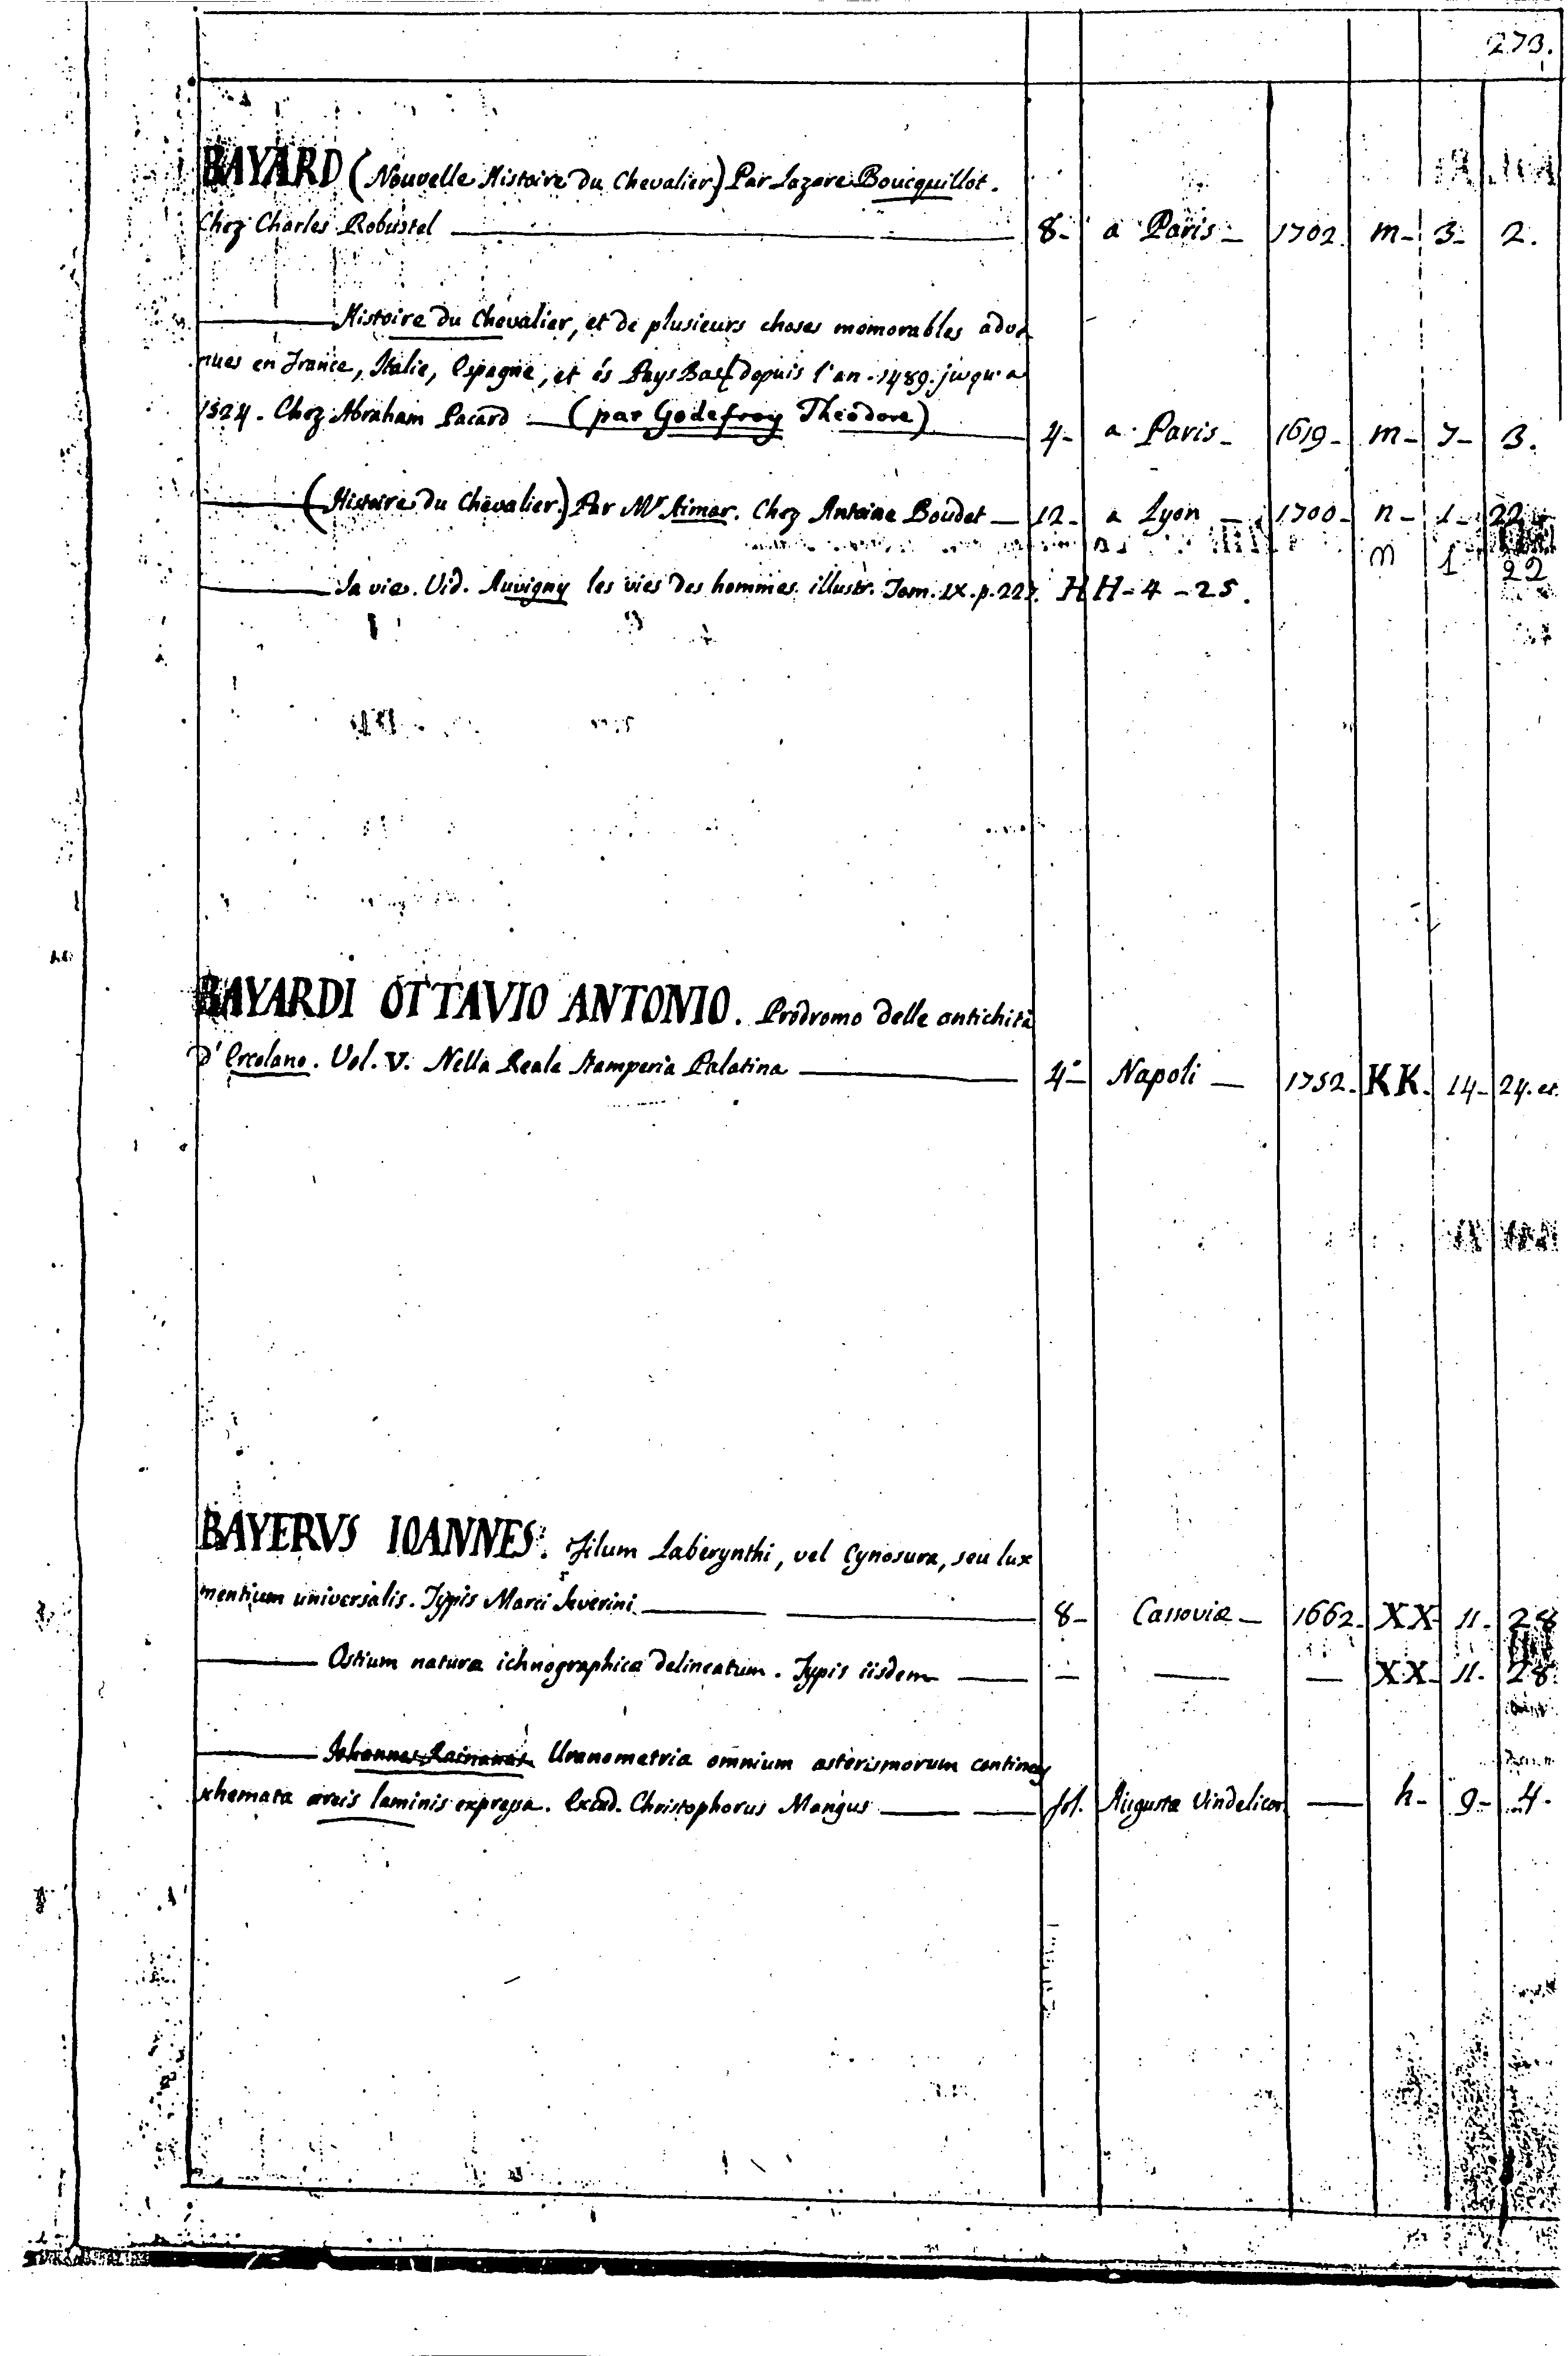 273.
BAYARD (Nouvelle Histoire du Chevalier) Par Lazare Boucquillot.
Chez Charles Robustel — 8- a Paris - 1702. m- 3- 2.
— Histoire du Chevalier, et de plusieurs choses momorables adve
nues en France, Italie, Espagne, et és Pays Bas depuis l'an. 1489. jusqu'a
1524. Chez Abraham Pacard — (par Godefroy Theodore) — 4- a Paris - 1619- m- 7- 3.
— (Histoire du Chevalier.) Par Mr Aimar. Chez Antoine Boudet — 12- a Lyon - 1700- n- 1- 22
m 1 22
— Sa vie. Vid. Auvigny les vies des hommes illustr. Tom. IX. p. 227. HH-4-25.
BAYARDI OTTAVIO ANTONIO. Prodromo delle antichità
d'Ercolano. Vol. V. Nella Reale Stamperia Palatina — 4°- Napoli — 1752- KK. 14- 24. et.
BAYERVS IOANNES. Filum Laberynthi, vel Cynosura, seu lux
mentium universalis. Typis Marci Severini — 8- Cassoviæ - 1662- XX- 11- 28
— Ostium naturæ ichnographicæ delineatum. Typis iisdem — — — — XX- 11- 28.
— Uranometria omnium asterismorum continens
schemata æreis laminis expressa. Excud. Christophorus Mangus — fol. Augustæ Vindelicor — h- 9- 4.